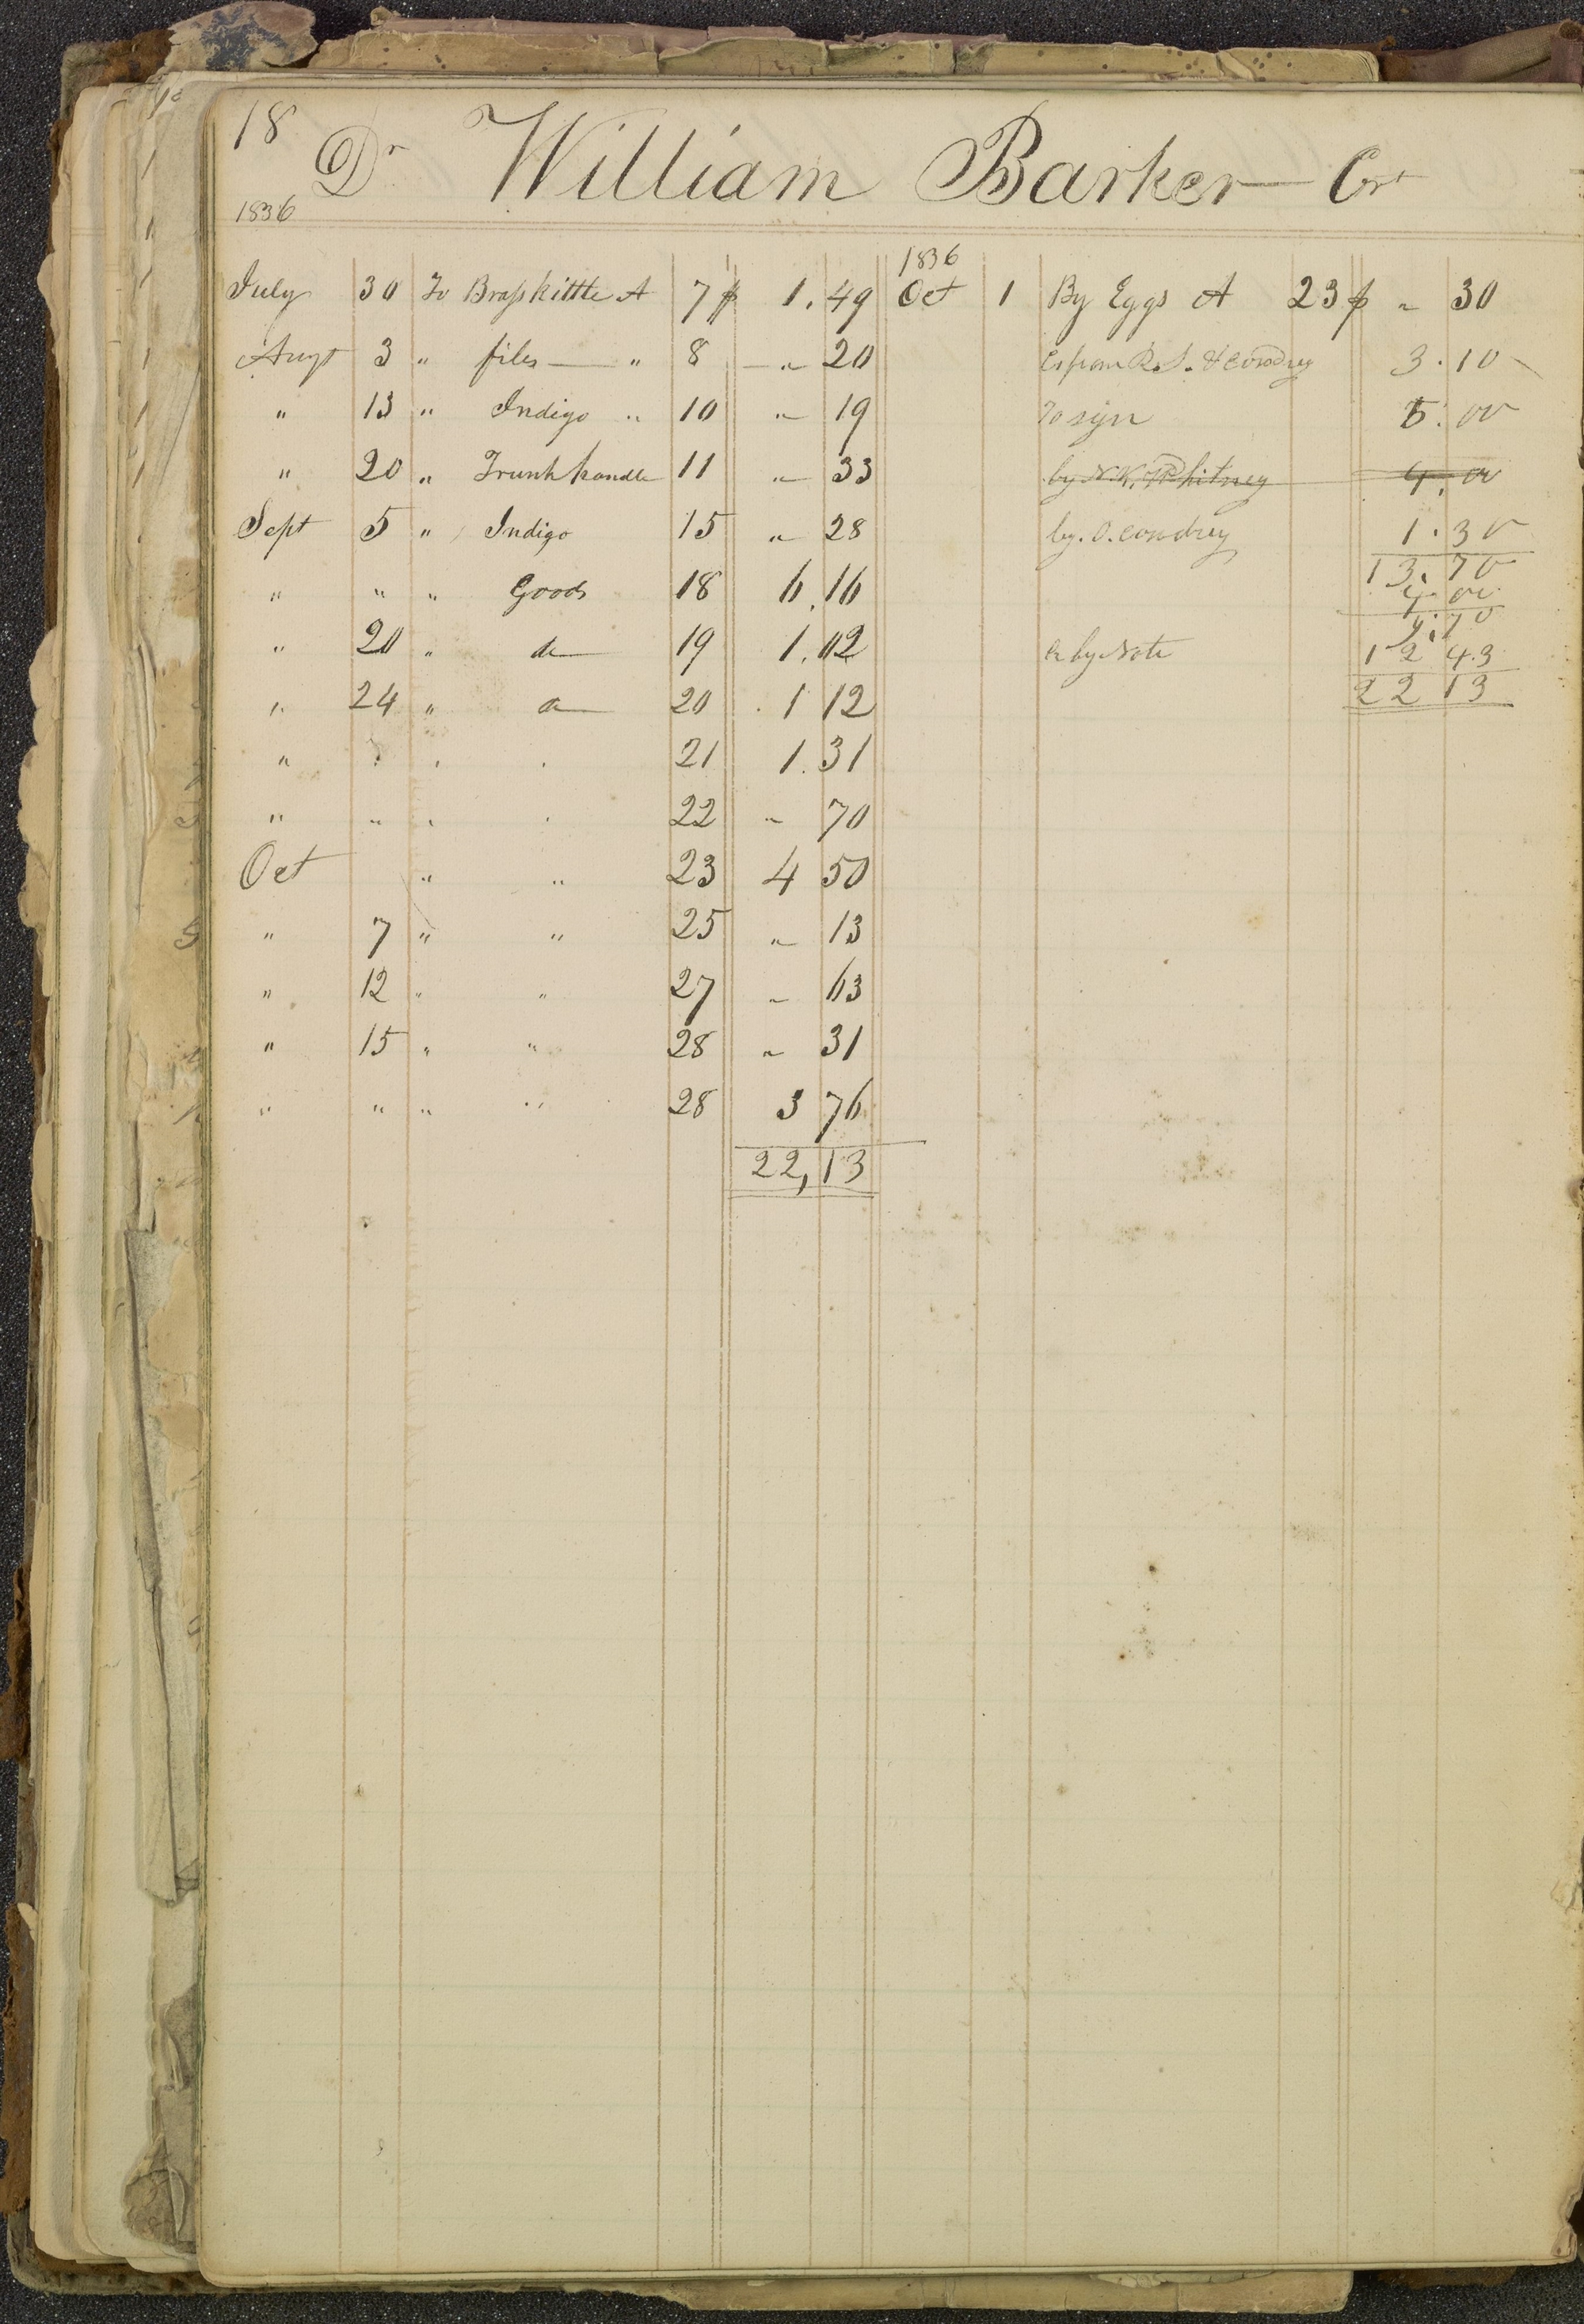 18
Dr William Barker Cr
1836
July 30 To Brass kittle A 7 $ 1.49
Augt 3 " files — " 8 " 20
" 13 " Indigo " 10 " 19
" 20 " Trunk handle 11 " 33
Sept 5 " Indigo 15 " 28
" " " Goods 18 6.16
" 20 " do 19 1.02
" 24 " do 20 1 12
" " " " 21 1.31
" " " " 22 " 70
Oct " " 23 4 50
" 7 " " 25 " 13
" 12 " " 27 " 63
" 15 " " 28 " 31
" " " " 28 3 76
22,13
1836
Oct 1 By Eggs A 23 $ " 30
Cr from R. & O Cowdrey 3.10
To sign 5.00
by N. K. Whitney 4.00
by O. Cowdrey 1.30
13.70
4 00
9.70
Cr by Note 12 43
22 13